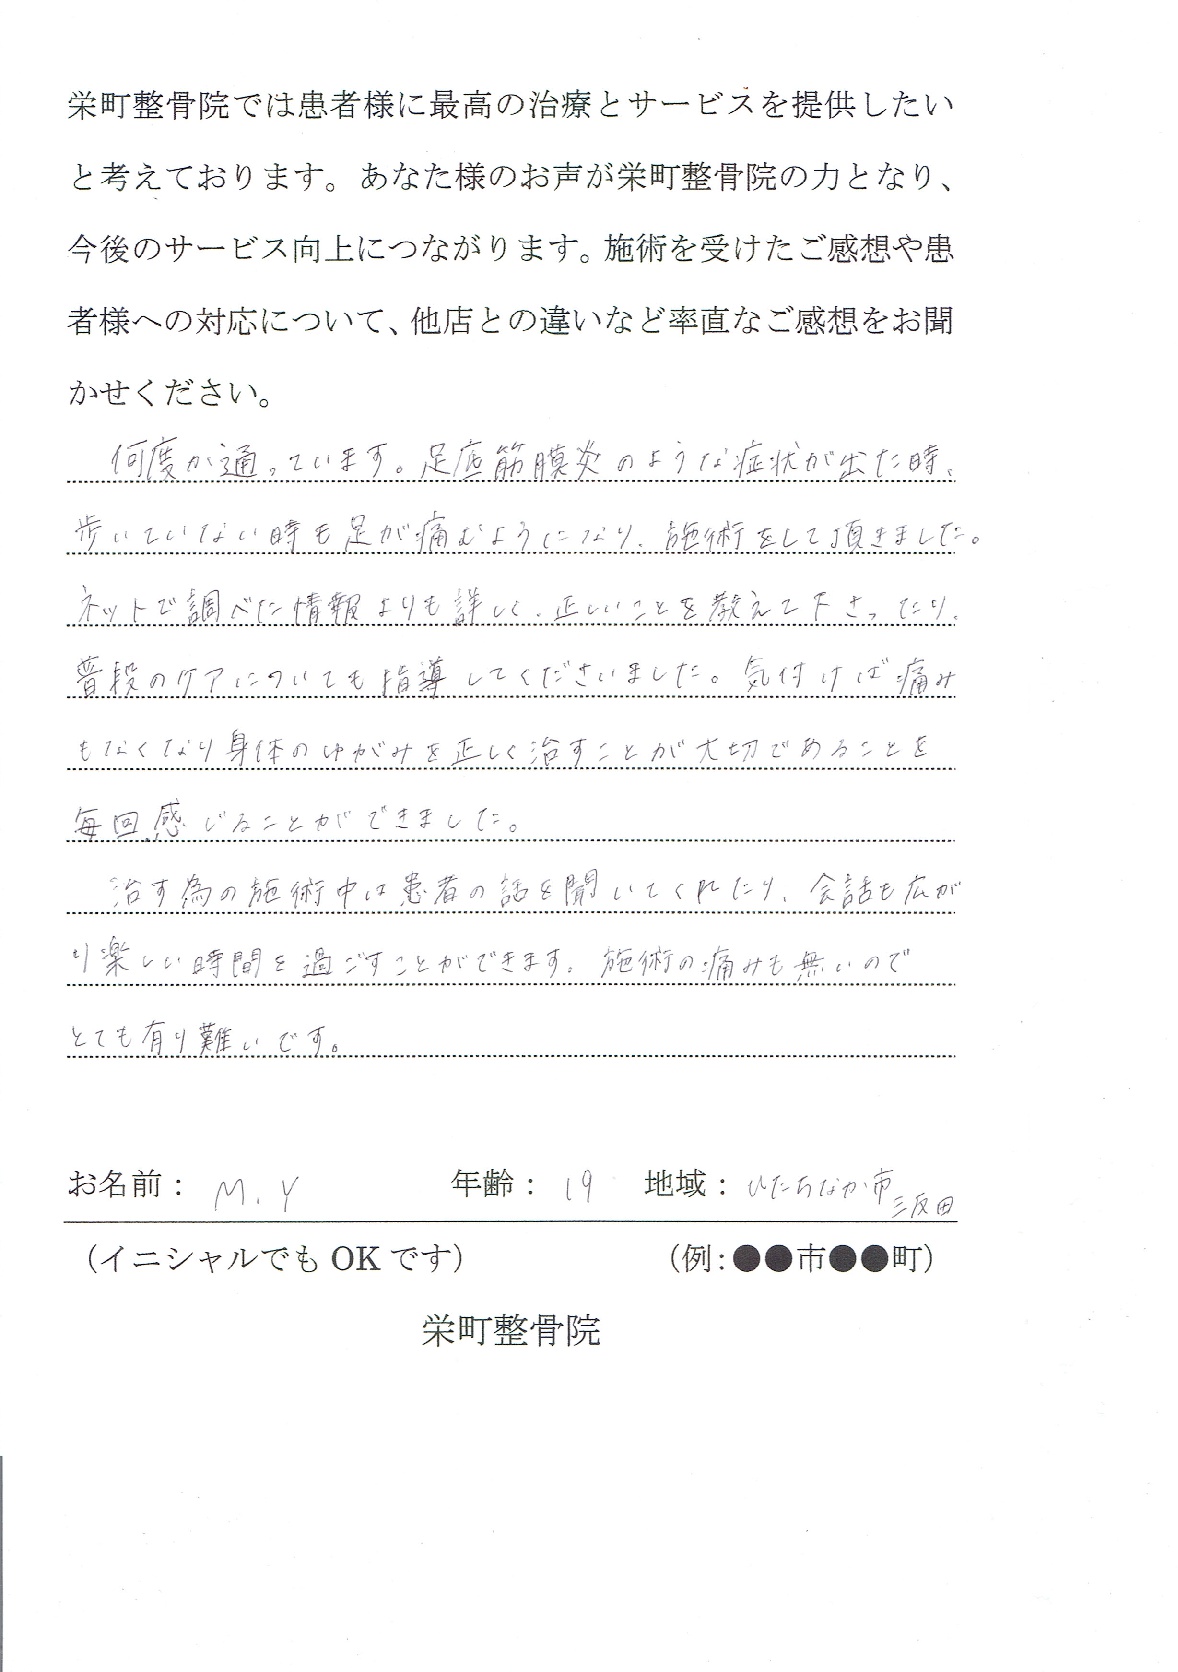 栄町整骨院では患者様に最高の治療とサービスを提供したい
と考えております。あなた様のお声が栄町整骨院の力となり、
今後のサービス向上につながります。施術を受けたご感想や患
者様への対応について、他店との違いなど率直なご感想をお聞
かせください。
何度か通っています。足底筋膜炎のような症状が出た時、
歩いていない時も足が痛むようになり、施術をして頂きました。
ネットで調べた情報よりも詳しく、正しいことを教えて下さったり、
普段のケアについても指導してくださいました。気付けば痛み
もなくなり身体のゆがみを正しく治すことが大切であることを
毎回感じることができました。
治す為の施術中は患者の話を聞いてくれたり、会話も広が
り楽しい時間を過ごすことができます。施術の痛みも無いので
とても有り難いです。
お名前： M.Y 年齢： 19 地域： ひたちなか市
三反田
（イニシャルでも OK です） （例：●●市●●町）
栄町整骨院